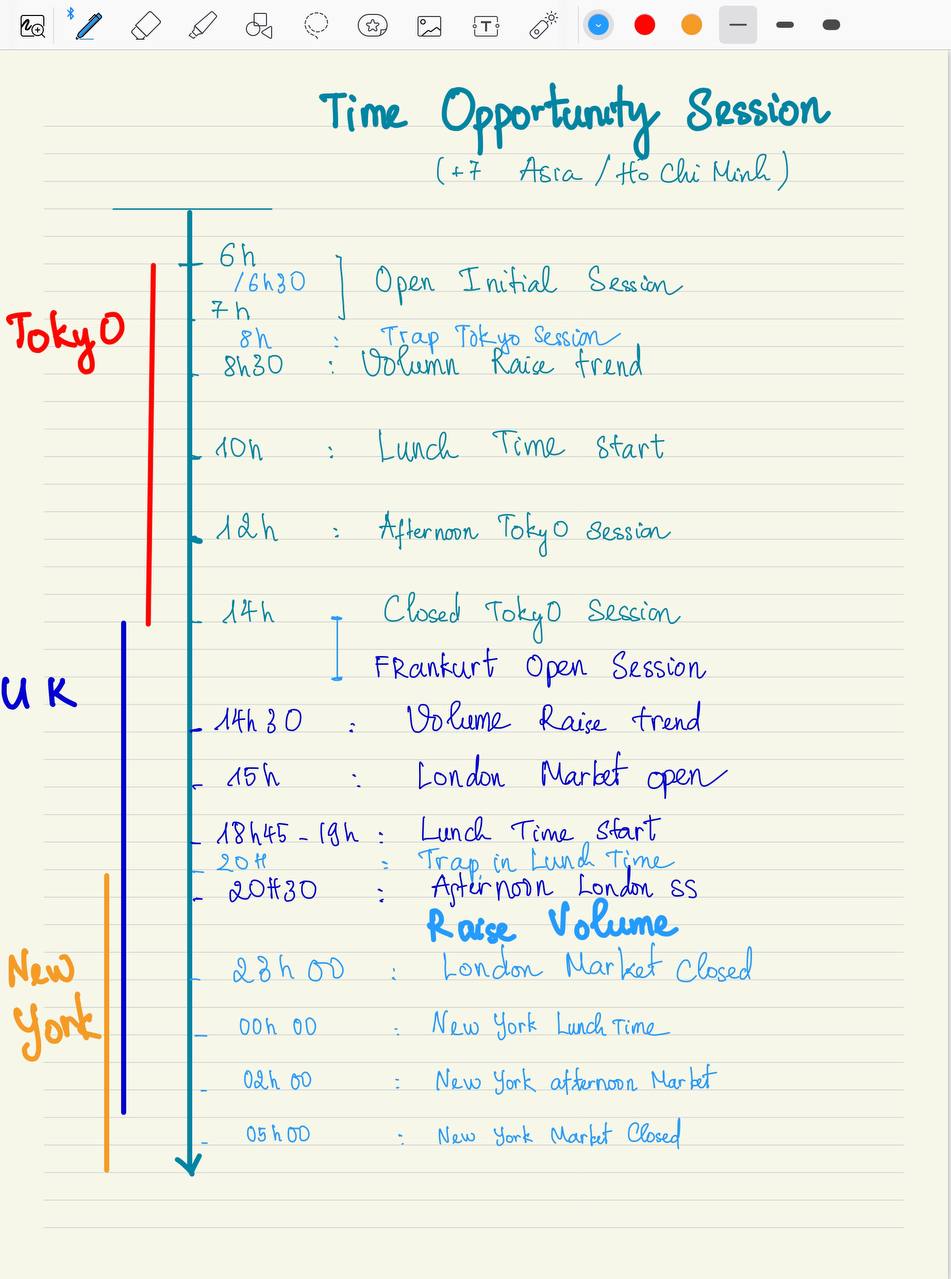 Time Opportunity Session
(+7 Asia / Hồ Chi Minh)
6h
/6h30
Open Initial Session
7h
Tokyo
8h : Trap Tokyo Session
8h30 : Volumn Raise trend
10h : Lunch Time Start
12h : Afternoon Tokyo Session
14h Closed Tokyo Session
FRankurt Open Session
UK
14h30 : Volume Raise trend
15h : London Market open
18h45 - 19h : Lunch Time Start
20H : Trap in Lunch Time
20H30 : Afternoon London SS
Raise Volume
23h00 : London Market Closed
New
York
00h00 : New York Lunch Time
02h00 : New York afternoon Market
05h00 : New York Market Closed